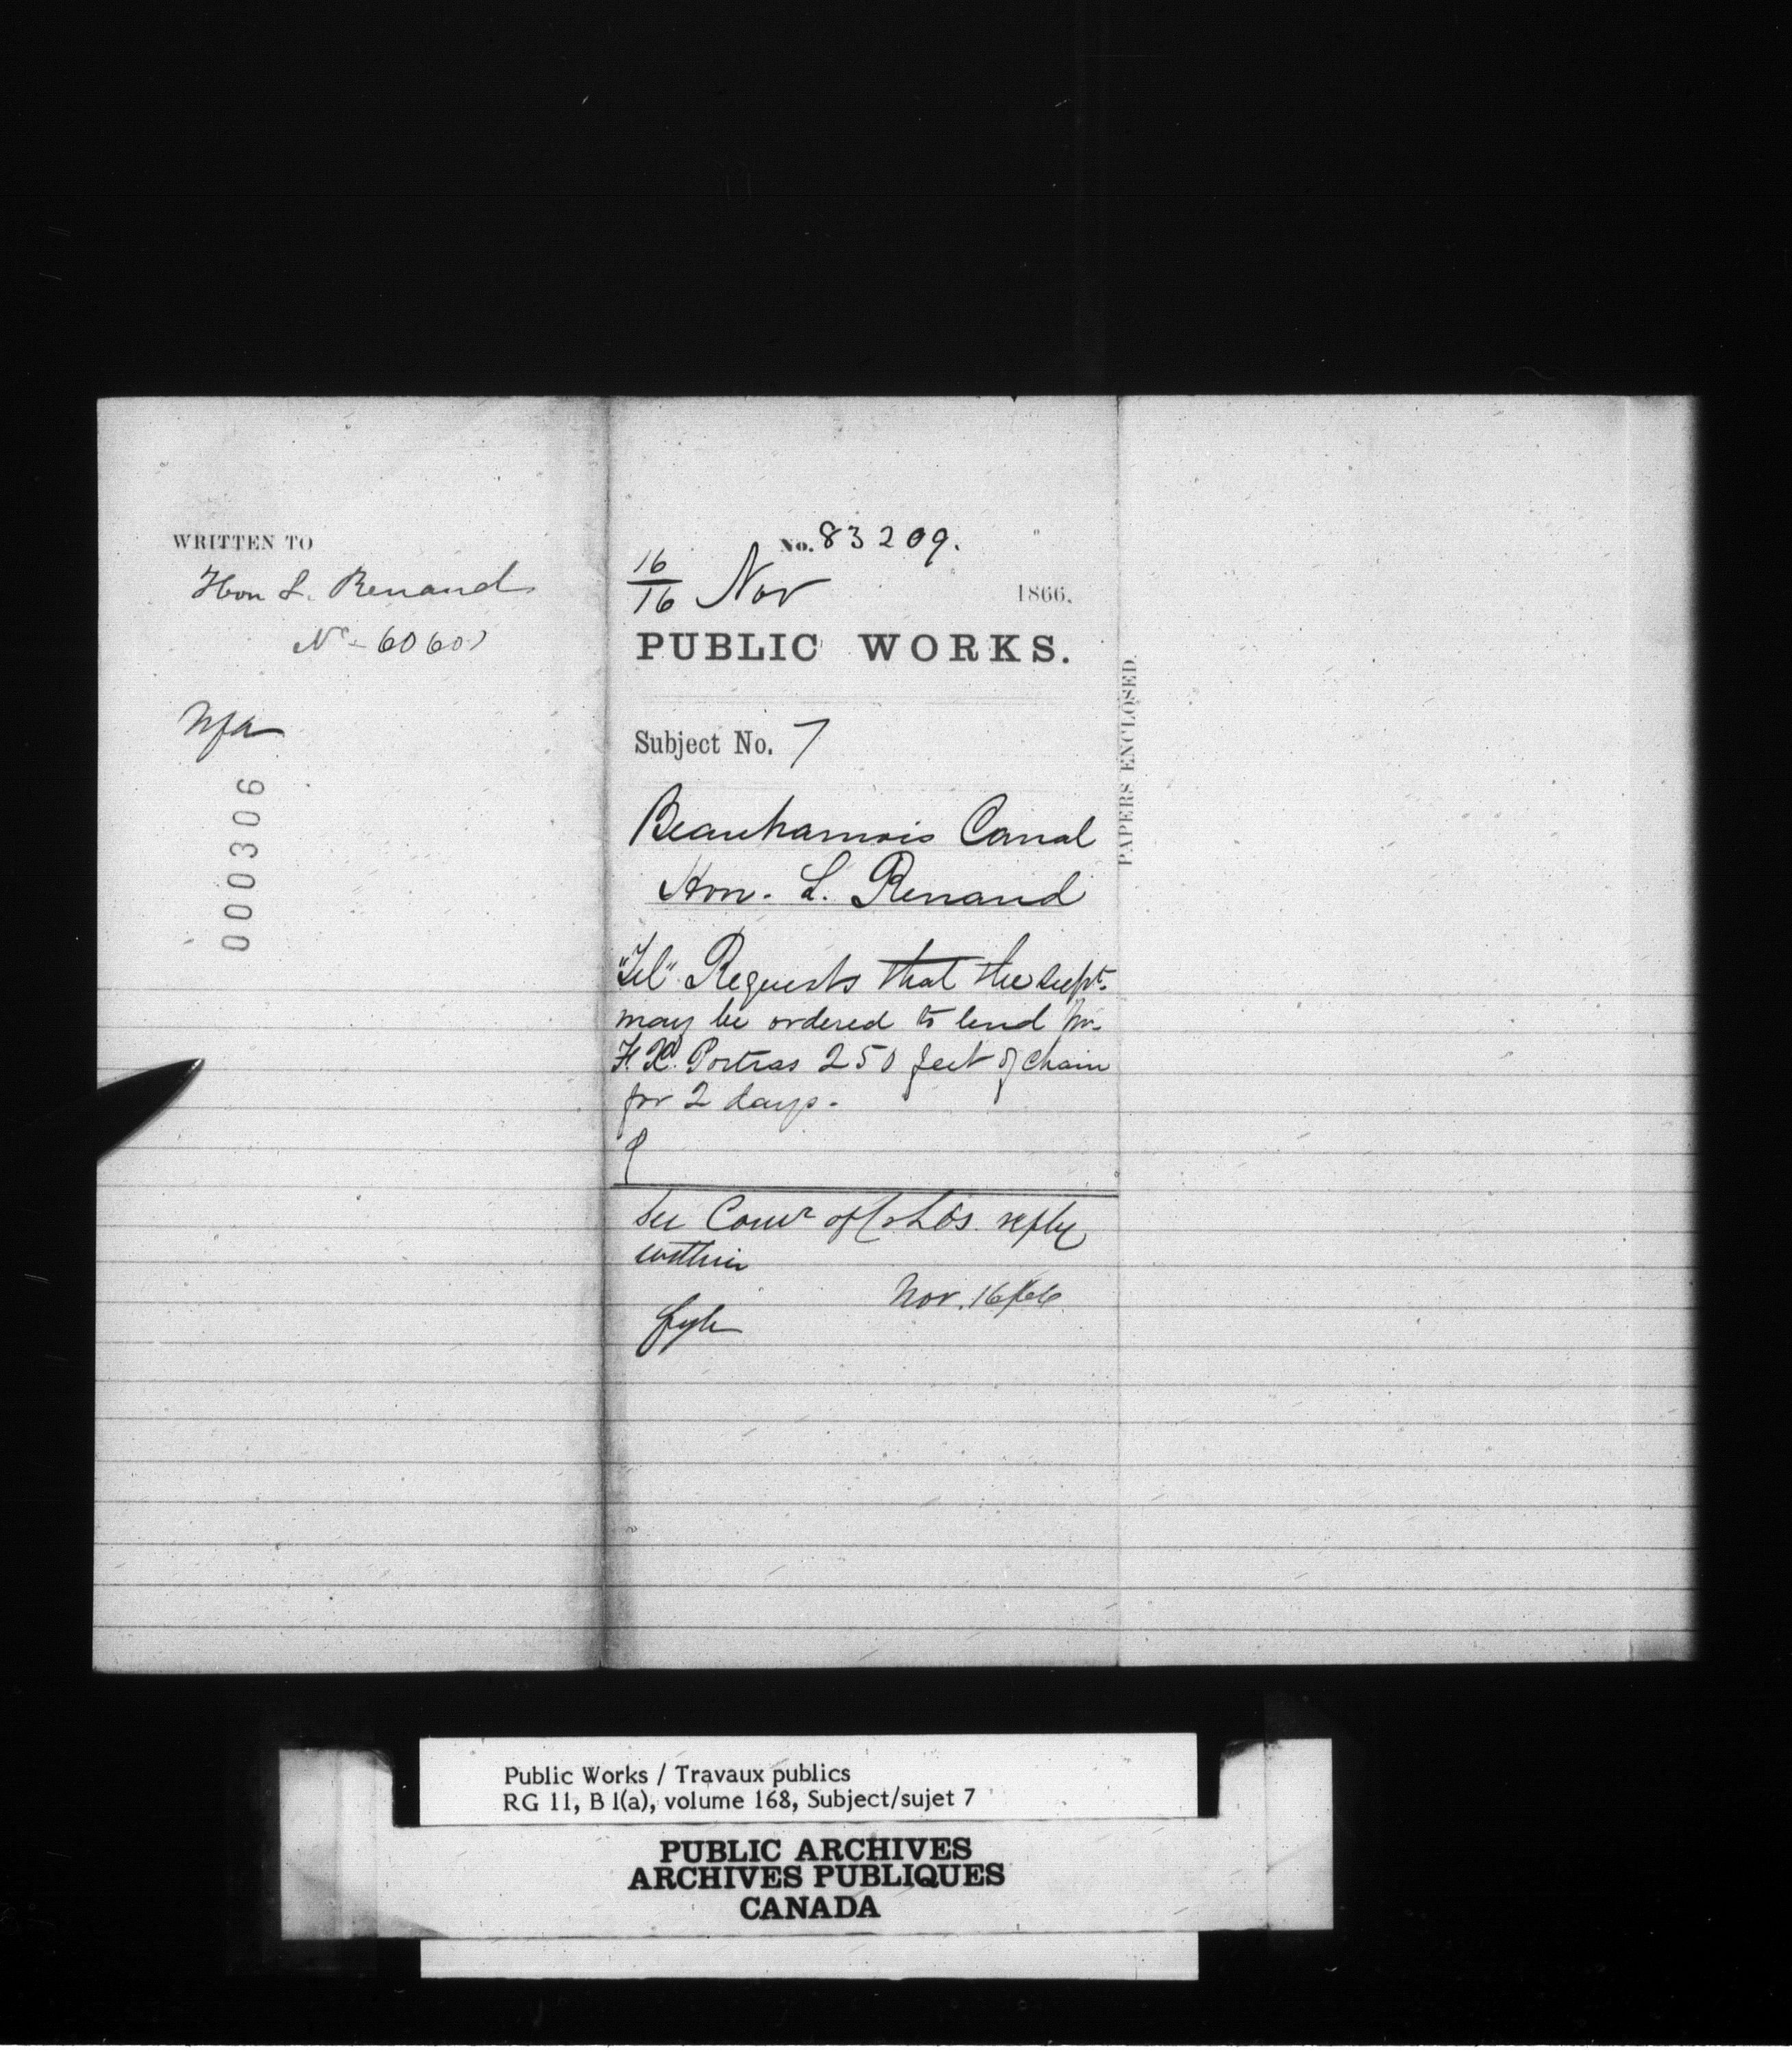 WRITTEN TO
Hon L. Renaud
No - 6060
Nfa
000306
No. 83209.
16/16 Nov 1866.
PUBLIC WORKS.
Subject No. 7
Beauharnois Canal
Hon. L. Renaud
"Tel" Requests that the Supt.
may be ordered to lend Mr.
F. X. Poitras 250 feet of chain
for 2 days.
See Comr of C. Lds. reply
within
Nov. 16/66
fyle
PAPERS ENCLOSED.
Public Works / Travaux publics
RG 11, B 1(a), volume 168, Subject/sujet 7
PUBLIC ARCHIVES
ARCHIVES PUBLIQUES
CANADA